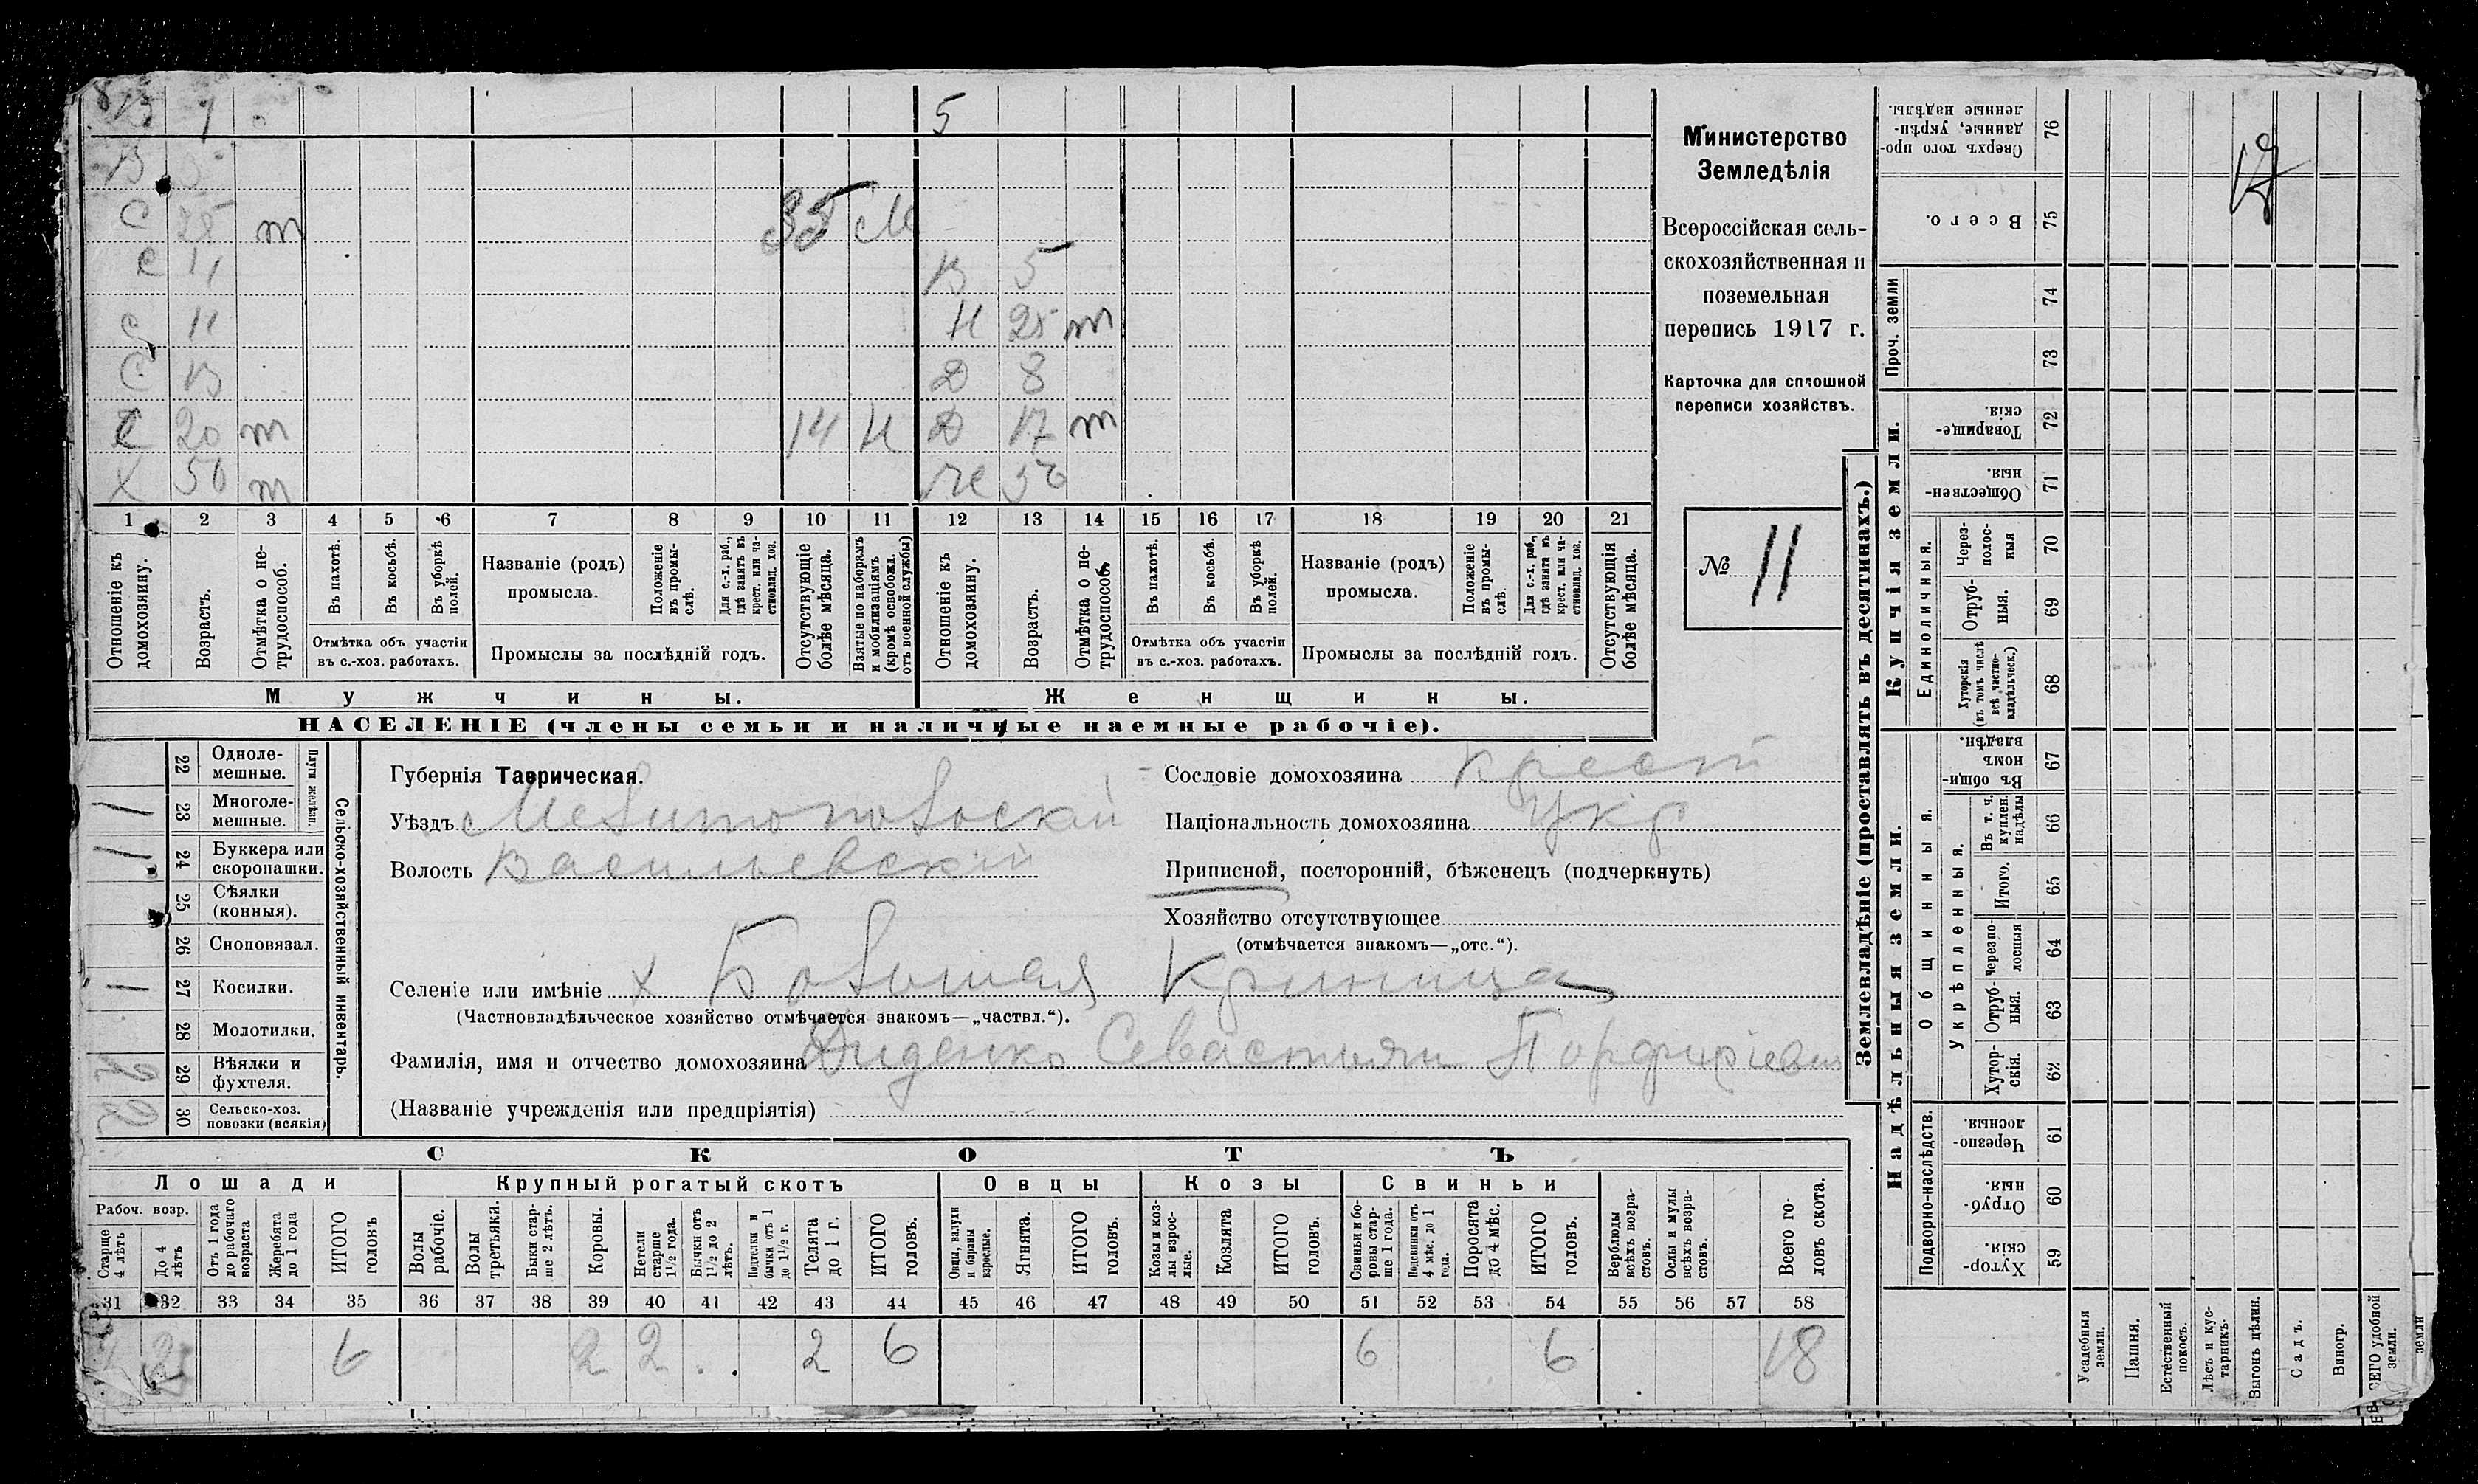 5
В
С 25 т 35 М
С 11 В 5
С 11 Н 25 т
С 13 Д 8
С 20 т 14 Н Д 17 т
Х 50 т Же 50
1 2 3 4 5 6 7 8 9 10 11 12 13 14 15 16 17 18 19 20 21
Отношеніе къ домохозяину.
Возрастъ.
Отмѣтка о нетрудоспособ.
Въ пахотѣ.
Въ косьбѣ.
Въ уборкѣ полей.
Отмѣтка объ участіи
въ с.-хоз. работахъ.
Названіе (родъ)
промысла.
Положеніе въ промыслѣ.
Для с.-х. раб., гдѣ занятъ въ крест. или частновлад. хоз.
Промыслы за послѣдній годъ.
Отсутствующіе болѣе мѣсяца.
Взятые по наборамъ и мобилизаціямъ (кромѣ освобожд. отъ военной службы)
Отношеніе къ домохозяину.
Возрастъ.
Отмѣтка о нетрудоспособ.
Въ пахотѣ.
Въ косьбѣ.
Въ уборкѣ полей.
Отмѣтка объ участіи
въ с.-хоз. работахъ.
Названіе (родъ)
промысла.
Положеніе въ промыслѣ.
Для с.-х. раб., гдѣ занята въ крест. или частновлад. хоз.
Промыслы за послѣдній годъ.
Отсутствующія болѣе мѣсяца.
Мужчины.
Женщины.
НАСЕЛЕНІЕ (члены семьи и наличные наемные рабочіе).
Министерство
Земледѣлія
Всероссійская сель-
скохозяйственная и
поземельная
перепись 1917 г.
Карточка для сплошной
переписи хозяйствъ.
№ 11
Сельско-хозяйственный инвентарь.
Плуги желѣзн.
22 Одноле-
мешные.
1 23 Многоле-
мешные.
1 24 Буккера или
скоропашки.
25 Сѣялки
(конныя).
26 Сноповязал.
1 27 Косилки.
28 Молотилки.
29 Вѣялки и
фухтеля.
2 30 Сельско-хоз.
повозки (всякія)
Губернія Таврическая.
Уѣздъ Мелитопольскій
Волость Васильевскій
Сословіе домохозяина крест
Національность домохозяина Укр
Приписной, посторонній, бѣженецъ (подчеркнуть)
Хозяйство отсутствующее
(отмѣчается знакомъ—„отс.“).
Селеніе или имѣніе х Большая Криница
(Частновладѣльческое хозяйство отмѣчается знакомъ—„частвл.“).
Фамилія, имя и отчество домохозяина Диденко Севастьян Порфиріевич
(Названіе учрежденія или предпріятія)
СКОТЪ
Лошади Крупный рогатый скотъ Овцы Козы Свиньи
Рабоч. возр.
Старше 4 лѣтъ
До 4 лѣтъ
Отъ 1 года до рабочаго возраста
Жеребята до 1 года
ИТОГО головъ
Волы рабочіе.
Волы третьяки.
Быки старше 2 лѣтъ.
Коровы.
Нетели старше 1½ года.
Бычки отъ 1½ до 2 лѣтъ.
Подтелки и бычки отъ 1 до 1½ г.
Телята до 1 г.
ИТОГО головъ.
Овцы, валухи и бараны взрослые.
Ягнята.
ИТОГО головъ.
Козы и козлы взрослые.
Козлята
ИТОГО головъ.
Свиньи и боровы старше 1 года.
Подсвинки отъ 4 мѣс. до 1 года.
Поросята до 4 мѣс.
ИТОГО головъ.
Верблюды всѣхъ возрастовъ.
Ослы и мулы всѣхъ возрастовъ.
Всего головъ скота.
31 32 33 34 35 36 37 38 39 40 41 42 43 44 45 46 47 48 49 50 51 52 53 54 55 56 57 58
2 6 2 2 2 6 6 6 18
Землевладѣніе (проставлять въ десятинахъ.)
Купчія земли.
Надѣльныя земли.
Проч. земли
Единоличныя.
Общинныя.
Укрѣпленныя.
Подворно-наслѣдств.
Сверхъ того проданные, укрѣпленные надѣлы. 76
Всего. 75
74
73
Товарищескія. 72
Общественныя. 71
Черезполосныя 70
Отрубныя. 69
Хуторскія (въ томъ числѣ всѣ частновладѣльческ.) 68
Въ общинномъ владѣн. 67
Въ т. ч. куплен. надѣлы 66
Итого. 65
Черезполосныя 64
Отрубныя. 63
Хуторскія. 62
Черезполосныя. 61
Отрубныя. 60
Хуторскія. 59
Усадебныя земли.
Пашня.
Естественный покосъ.
Лѣсъ и кустарникъ.
Выгонъ цѣлин.
Садъ.
Виногр.
ВСЕГО удобной земли.
земли